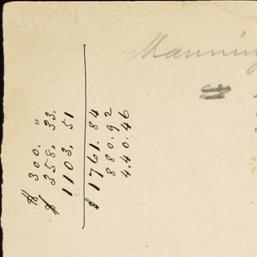 Manning
$ 300. "
$ 358. 33.
1103. 51
$ 1761. 84
880. 92
4.40. 46